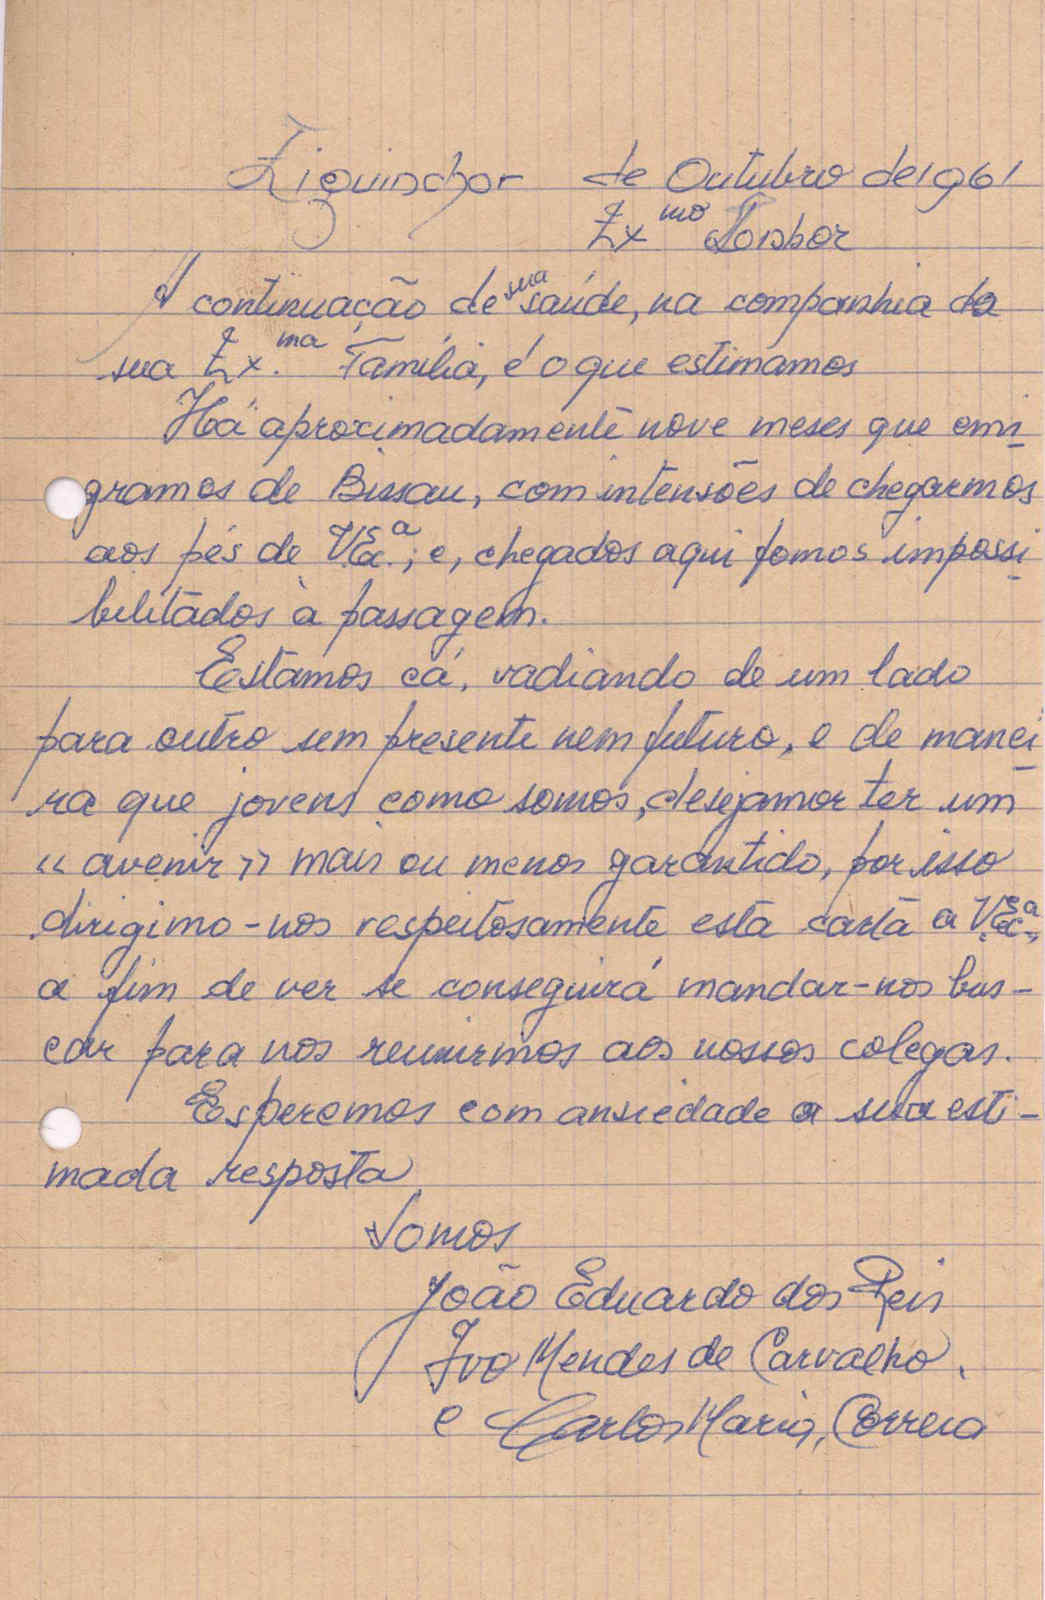 Ziguinchor de Outubro de 1961
Ex.mo Senhor
A continuação de sua saúde, na companhia da
sua Ex.ma Família, é o que estimamos
Há aproximadamente nove meses que emi
gramos de Bissau, com intensões de chegarmos
aos pés de V.Ex.a; e, chegados aqui fomos impossi
bilitados à passagem.
Estamos cá, vadiando de um lado
para outro sem presente nem futuro, e de manei
ra que jovens como somos, desejamos ter um
«avenir» mais ou menos garantido, por isso
dirigimo-nos respeitosamente esta carta a V.Ex.a,
a fim de ver se conseguirá mandar-nos bus-
car para nos reunirmos aos nossos colegas.
Esperemos com ansiedade a sua esti-
mada resposta
Somos
João Eduardo dos Reis
Ivo Mendes de Carvalho,
e Carlos Maria, Correia